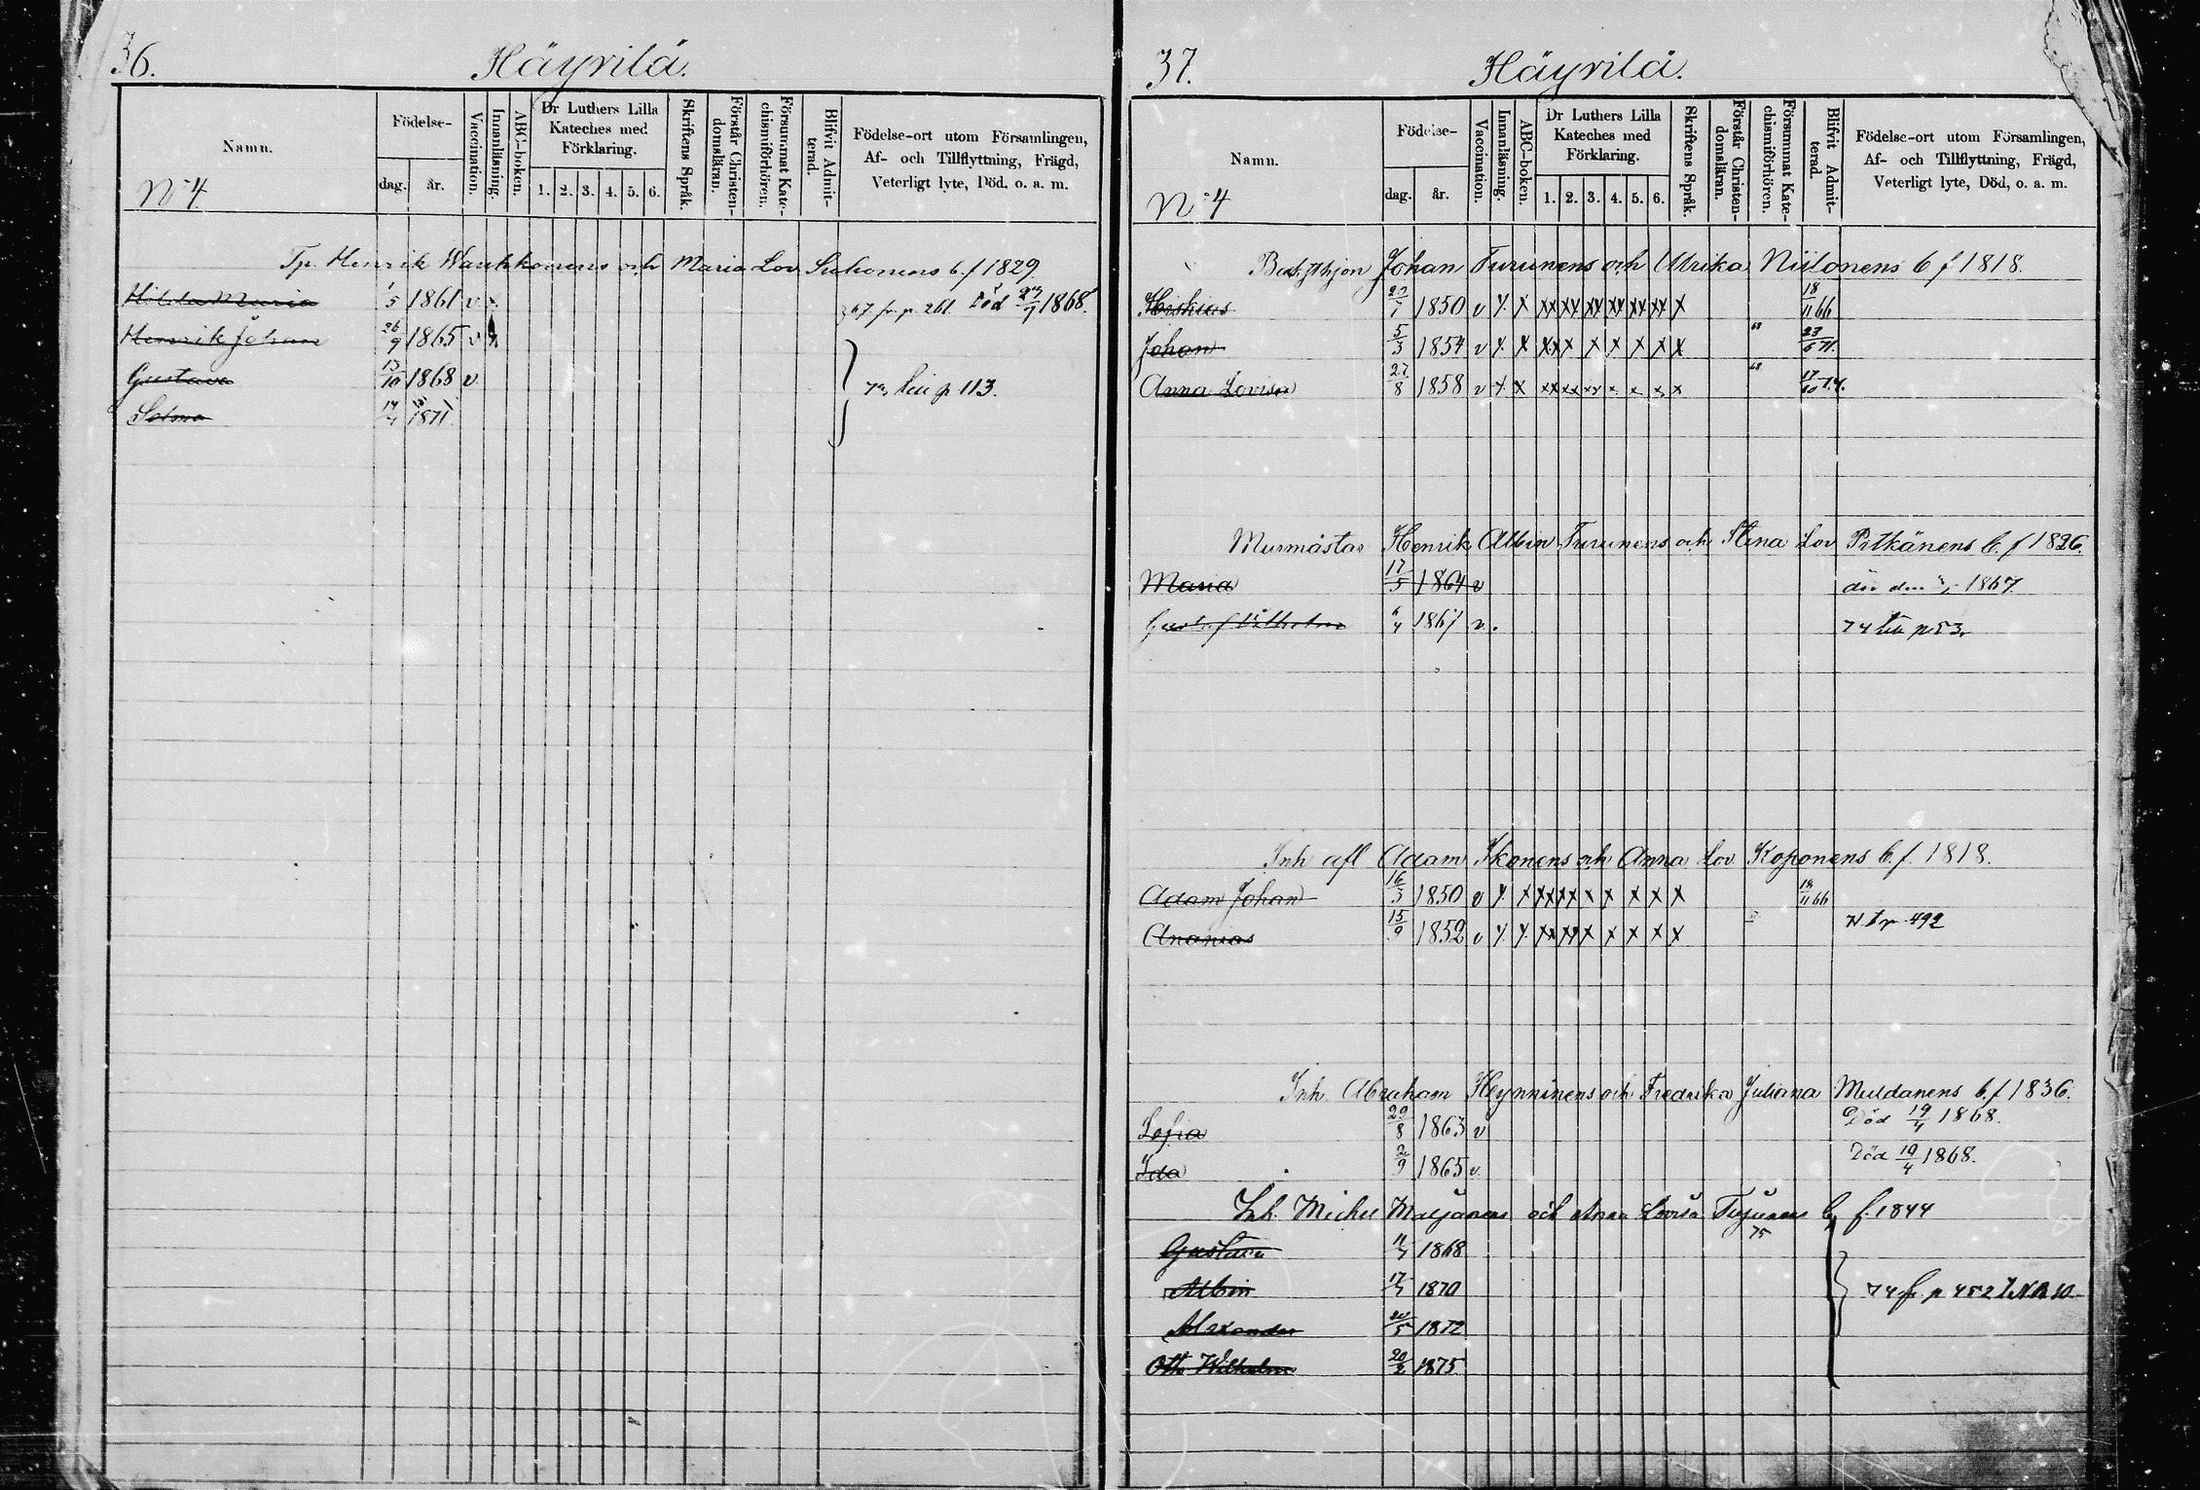 36.
Häyrilä.
Namn.
Födelse-
dag. år.
Vaccination.
Innanläsning.
ABC-boken.
Dr Luthers Lilla
Kateches med
Förklaring.
1. 2. 3. 4. 5. 6.
Skriftens Språk.
Förstår Christen-
domsläran.
Försummat Kate-
chismiförhören.
Blifvit Admit-
terad.
Födelse-ort utom Församlingen,
Af- och Tillflyttning, Frägd,
Veterligt lyte, Död, o. a. m.
N:o 4
Tp. Henrik och Maria Lov. b. f 1829.
Hilda Maria 1/5 1861 v 67 fr. p. 261. Död 1868.
Henrik Johan 26/9 1865 v
Gustava 13/10 1868 v p 113.
Selma 1871
37.
Häyrilä.
Namn.
Födelse-
dag. år.
Vaccination.
Innanläsning.
ABC-boken.
Dr Luthers Lilla
Kateches med
Förklaring.
1. 2. 3. 4. 5. 6.
Skriftens Språk.
Förstår Christen-
domsläran.
Försummat Kate-
chismiförhören.
Blifvit Admit-
terad.
Födelse-ort utom Församlingen,
Af- och Tillflyttning, Frägd,
Veterligt lyte, Död, o. a. m.
N:o 4
Johan Turunens och Ulrika Niilonens b f 1818.
Hiskias 1850 v x x xx xx xx xx xx xx x 18/11 66
Johan 5/3 1854 v x x xx x x x x x x 68 23/6 71.
Anna Lovisa 27/8 1858 v x x xx xx xx x x x x 68
Murmästar Henrik Albin Turunens och Stina Lov. Pitkänens b. f 1826.
Maria 17/5 1864 v 1867.
Gustaf Vilhelm 6/4 1867 v. 74 p 53.
Inh. afl Adam Ikonens och Anna Lov. Koponens b. f. 1818.
Adam Johan 16/3 1850 v x x xx xx x x x x x 18/11 66
Ananias 15/9 1852 v x x xx xx x x x x x p 492
Inh. Abraham Heynninens och Fredrika Juliana Muldanens b. f 1836.
Sofia 29/8 1863 v Död 19/4 1868.
Ida 2/9 1865 v. Död 19/4 1868.
Inh. Michel och Anna Lovisa b. f. 1844
75
Gustava 1868
Albin 1870 74 fr. p 452
Alexander 1872
Otto Wilhelm 20/2 1875.